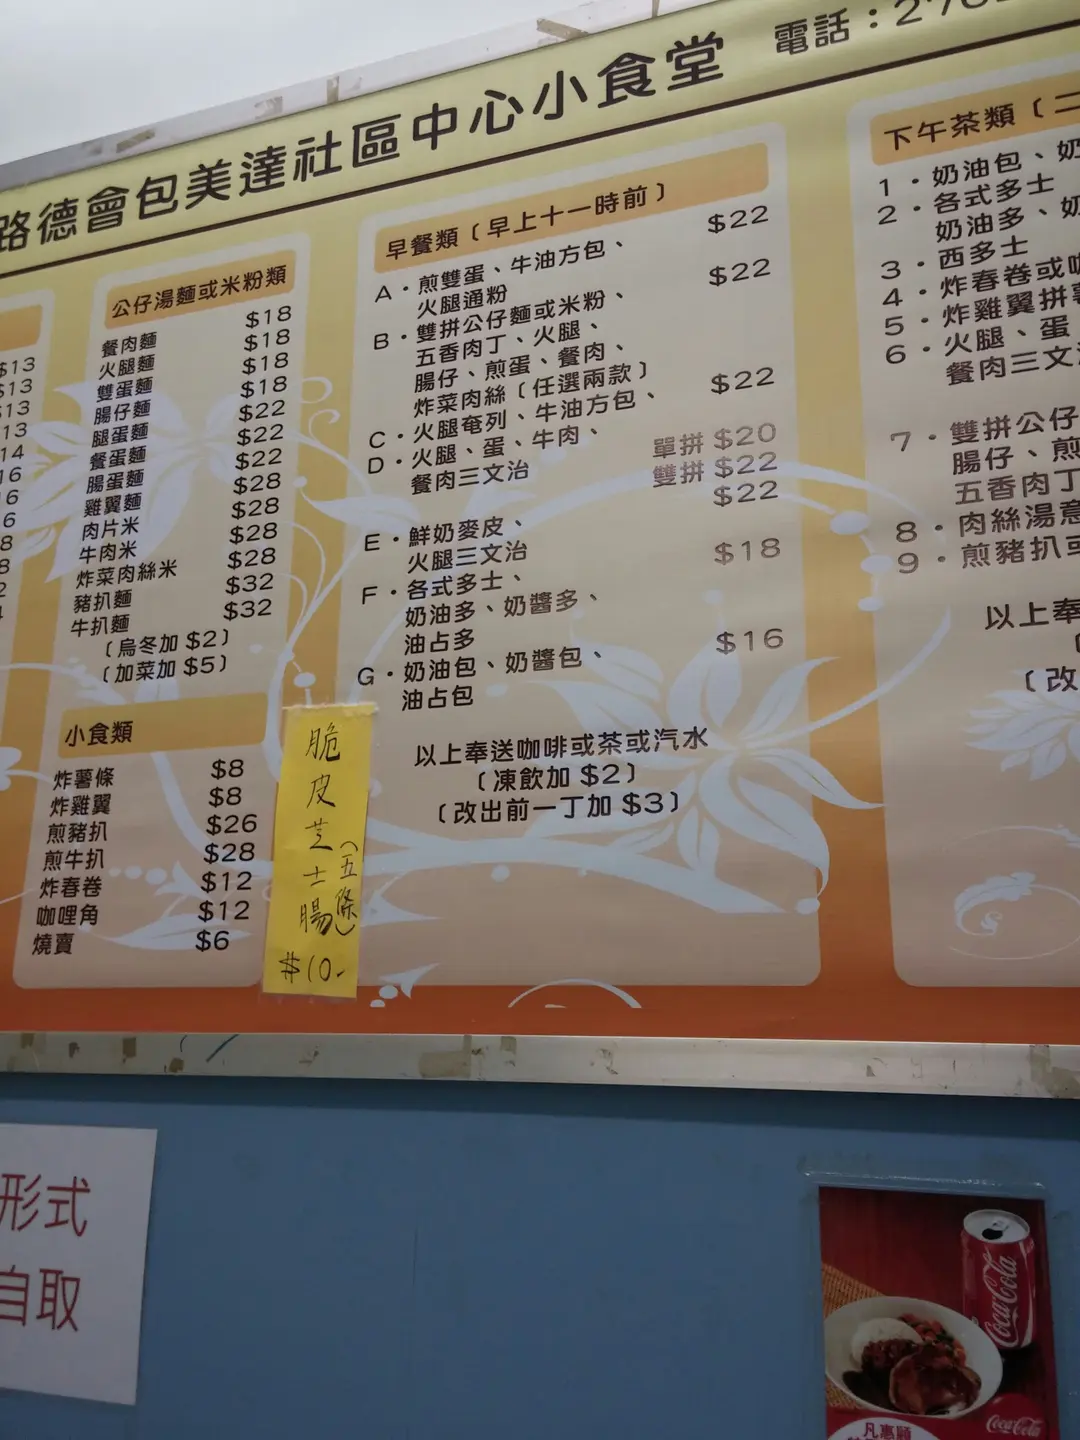 路德會包美達社區中心小食堂
電話：
$13
$13
$13
公仔湯麵或米粉類
餐肉麵 $18
火腿麵 $18
雙蛋麵 $18
腸仔麵 $18
腿蛋麵 $22
餐蛋麵 $22
腸蛋麵 $22
雞翼麵 $28
肉片米 $28
牛肉米 $28
炸菜肉絲米 $28
豬扒麵 $32
牛扒麵 $32
（烏冬加 $2）
（加菜加 $5）
小食類
炸薯條 $8
炸雞翼 $8
煎豬扒 $26
煎牛扒 $28
炸春卷 $12
咖哩角 $12
燒賣 $6
脆皮芝士腸
（五條）
$10-
早餐類（早上十一時前）
A・煎雙蛋、牛油方包、 $22
火腿通粉
B・雙拼公仔麵或米粉、 $22
五香肉丁、火腿、
腸仔、煎蛋、餐肉、
炸菜肉絲（任選兩款）
C・火腿奄列、牛油方包、 $22
D・火腿、蛋、牛肉、 單拼 $20
餐肉三文治 雙拼 $22
$22
E・鮮奶麥皮、
火腿三文治 $18
F・各式多士、
奶油多、奶醬多、
油占多 $16
G・奶油包、奶醬包、
油占包
以上奉送咖啡或茶或汽水
（凍飲加 $2）
（改出前一丁加 $3）
下午茶類（二
1・奶油包、奶
2・各式多士
奶油多、奶
3・西多士
4・炸春卷或咖
5・炸雞翼拼薯
6・火腿、蛋
餐肉三文
7・雙拼公仔
腸仔、煎
五香肉丁
8・肉絲湯意
9・煎豬扒或
以上奉
（改
形式
自取
Coca-Cola
凡惠顧
Coca-Cola